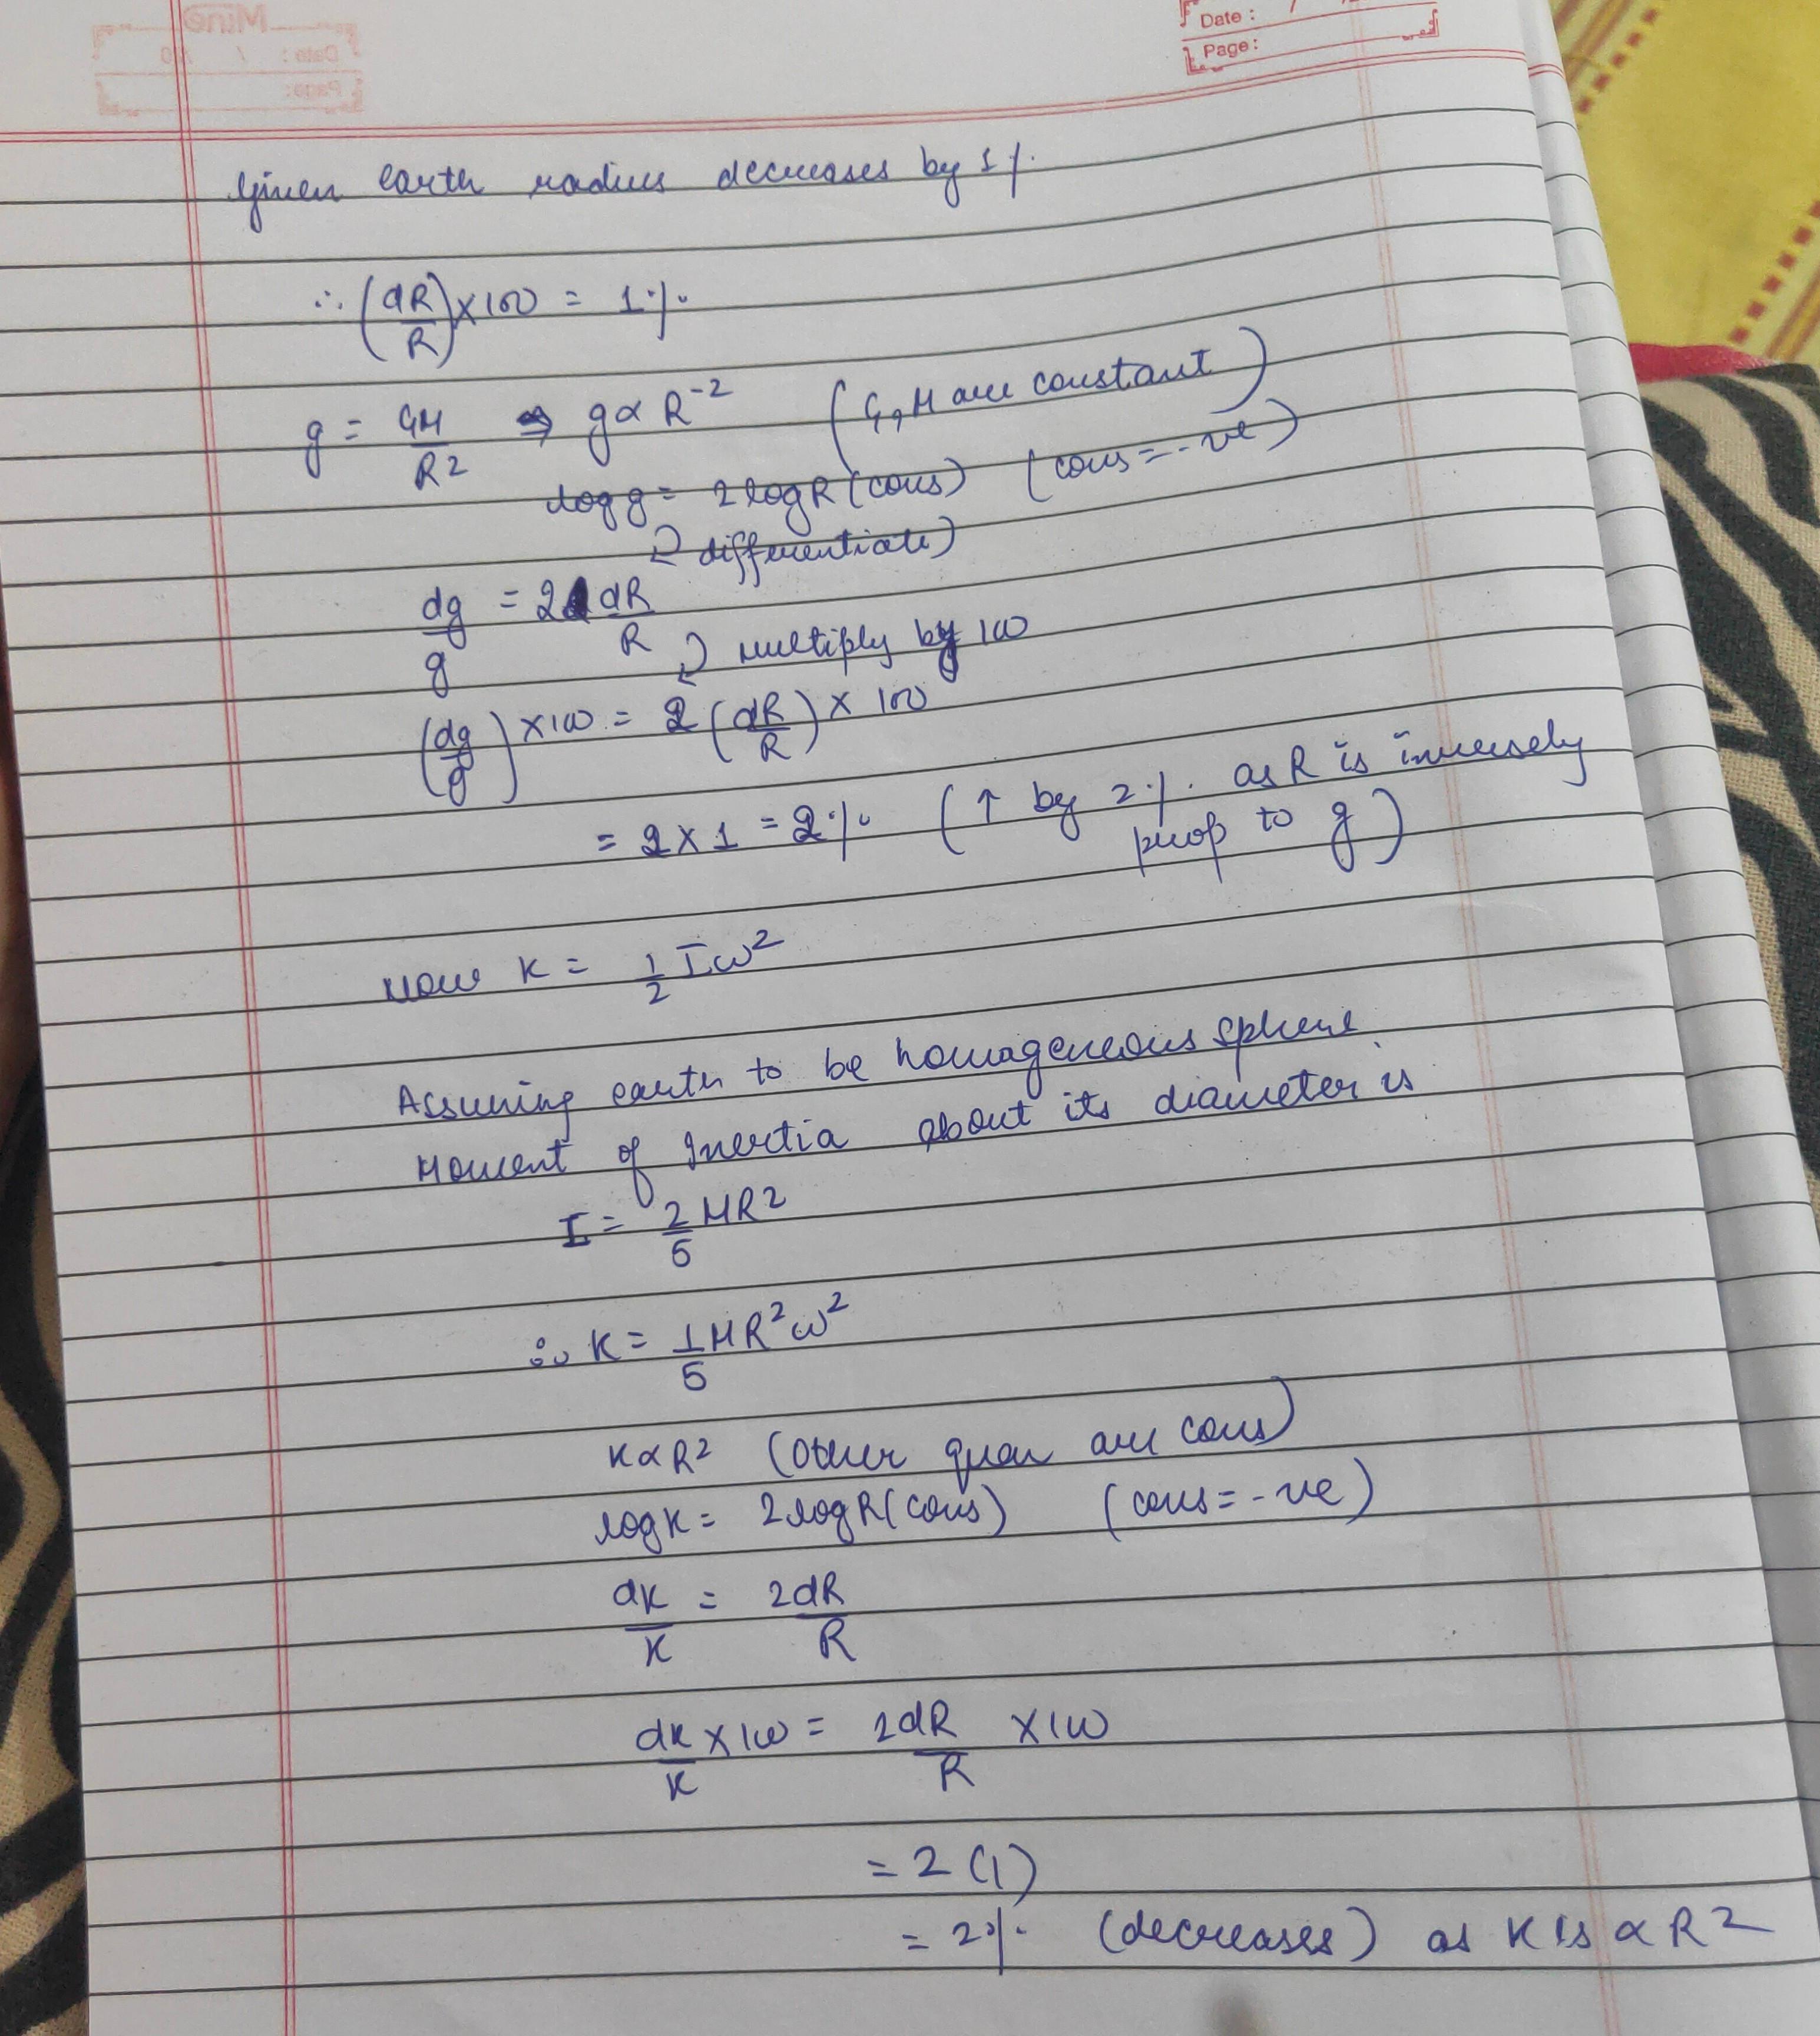 Date : /
Page:
Given earth radius decreases by 1%.
∴ (dR/R)×100 = 1%
g = GM/R² ⇒ g∝R⁻² (G, M are constant)
log g = 2logR (cons) (cons = -ve)
differentiate)
dg/g = 2 dR/R
multiply by 100
(dg/g)×100 = 2(dR/R)×100
= 2×1 = 2% (↑ by 2%. as R is inversely
prop to g)
Now K = 1/2 Iω²
Assuming earth to be homogeneous sphere.
Moment of Inertia about its diameter is
I = 2/5 MR²
∴ K = 1/5 MR²ω²
K∝R² (Other quan are cons)
logK = 2logR(cons) (cons = -ve)
dK/K = 2dR/R
dK/K ×100 = 2dR/R ×100
= 2(1)
= 2% (decreases) as K is ∝ R²